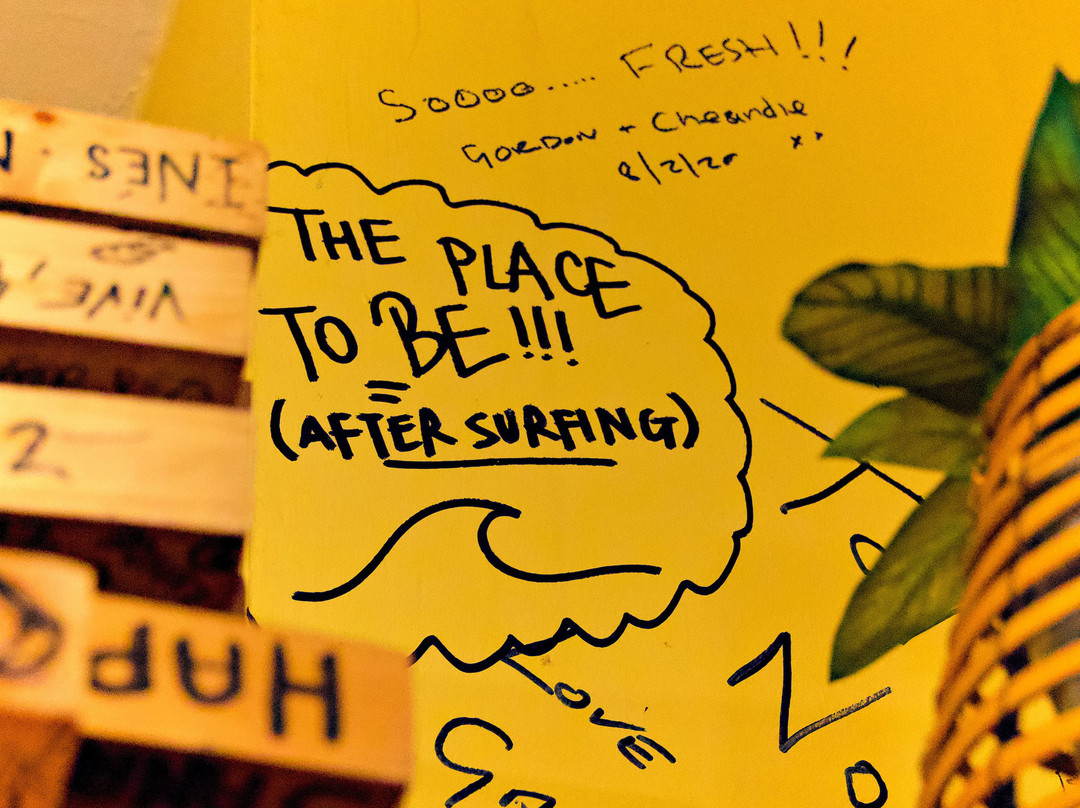 SOOOO..... FRESH!!!
GORDON + Cheandie
8/2/20 xx
THE PLACE
TO BE!!!
(AFTER SURFING)
LOVE
INÉS
VIVE,
2
HAP